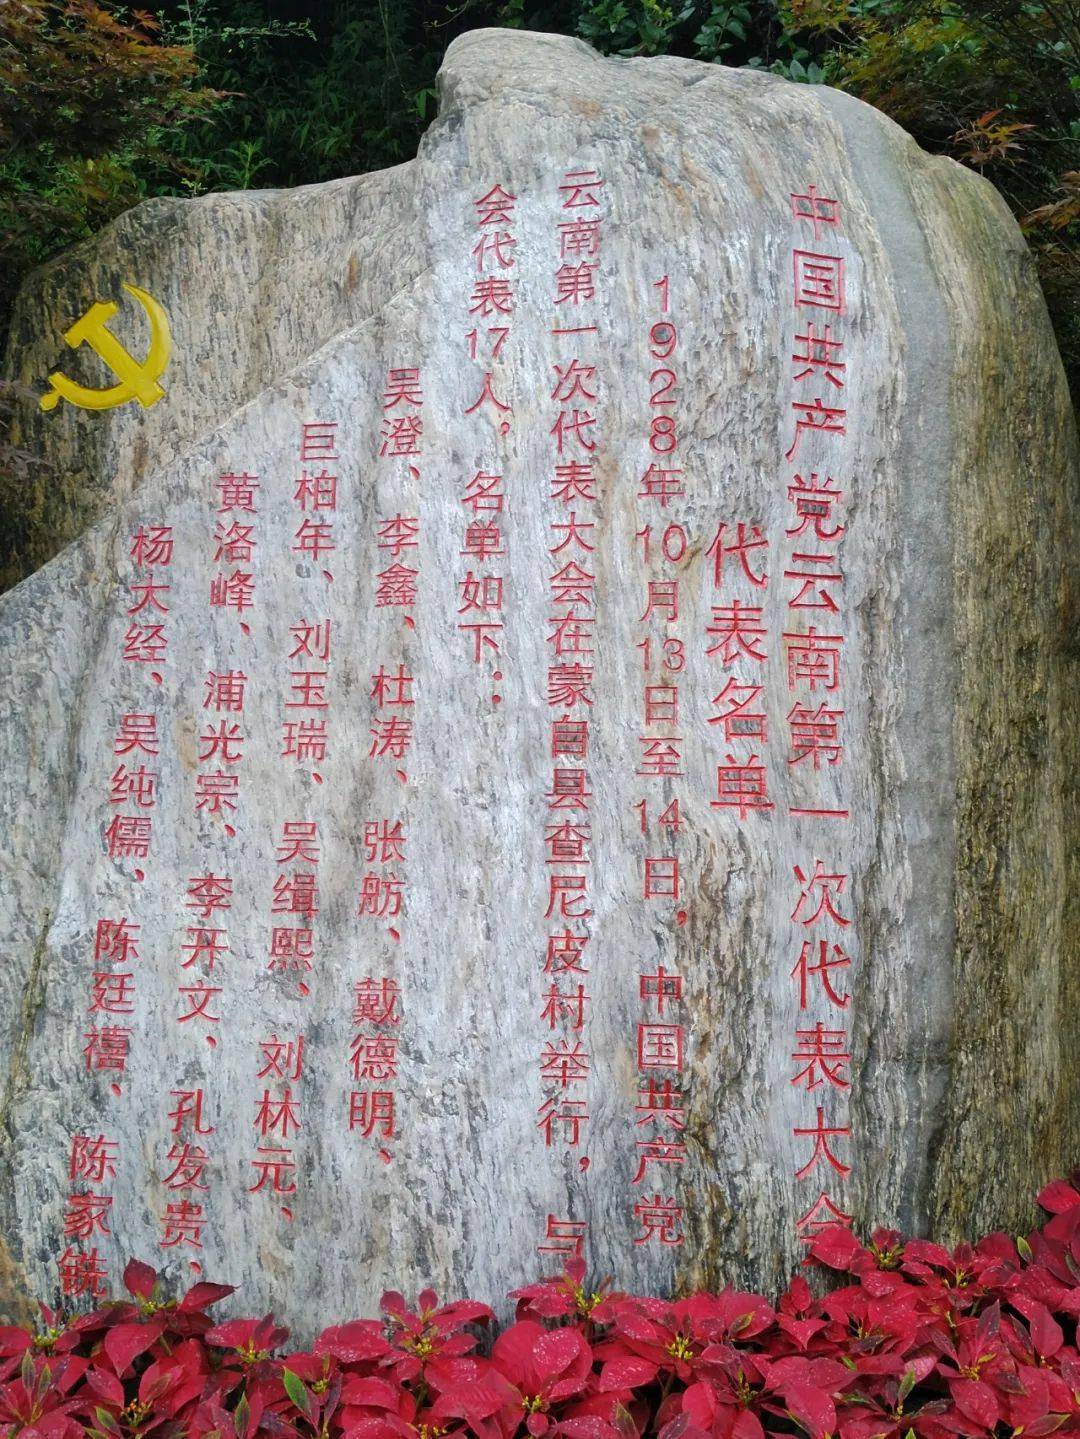 中国共产党云南第一次代表大会
代表名单
1928年10月13日至14日，中国共产党
云南第一次代表大会在蒙自县查尼皮村举行，与
会代表17人，名单如下：
吴澄、李鑫、杜涛、张舫、戴德明、
巨柏年、刘玉瑞、吴缉熙、刘林元、
黄洛峰、浦光宗、李开文、孔发贵、
杨大经、吴纯儒、陈廷禧、陈家铣